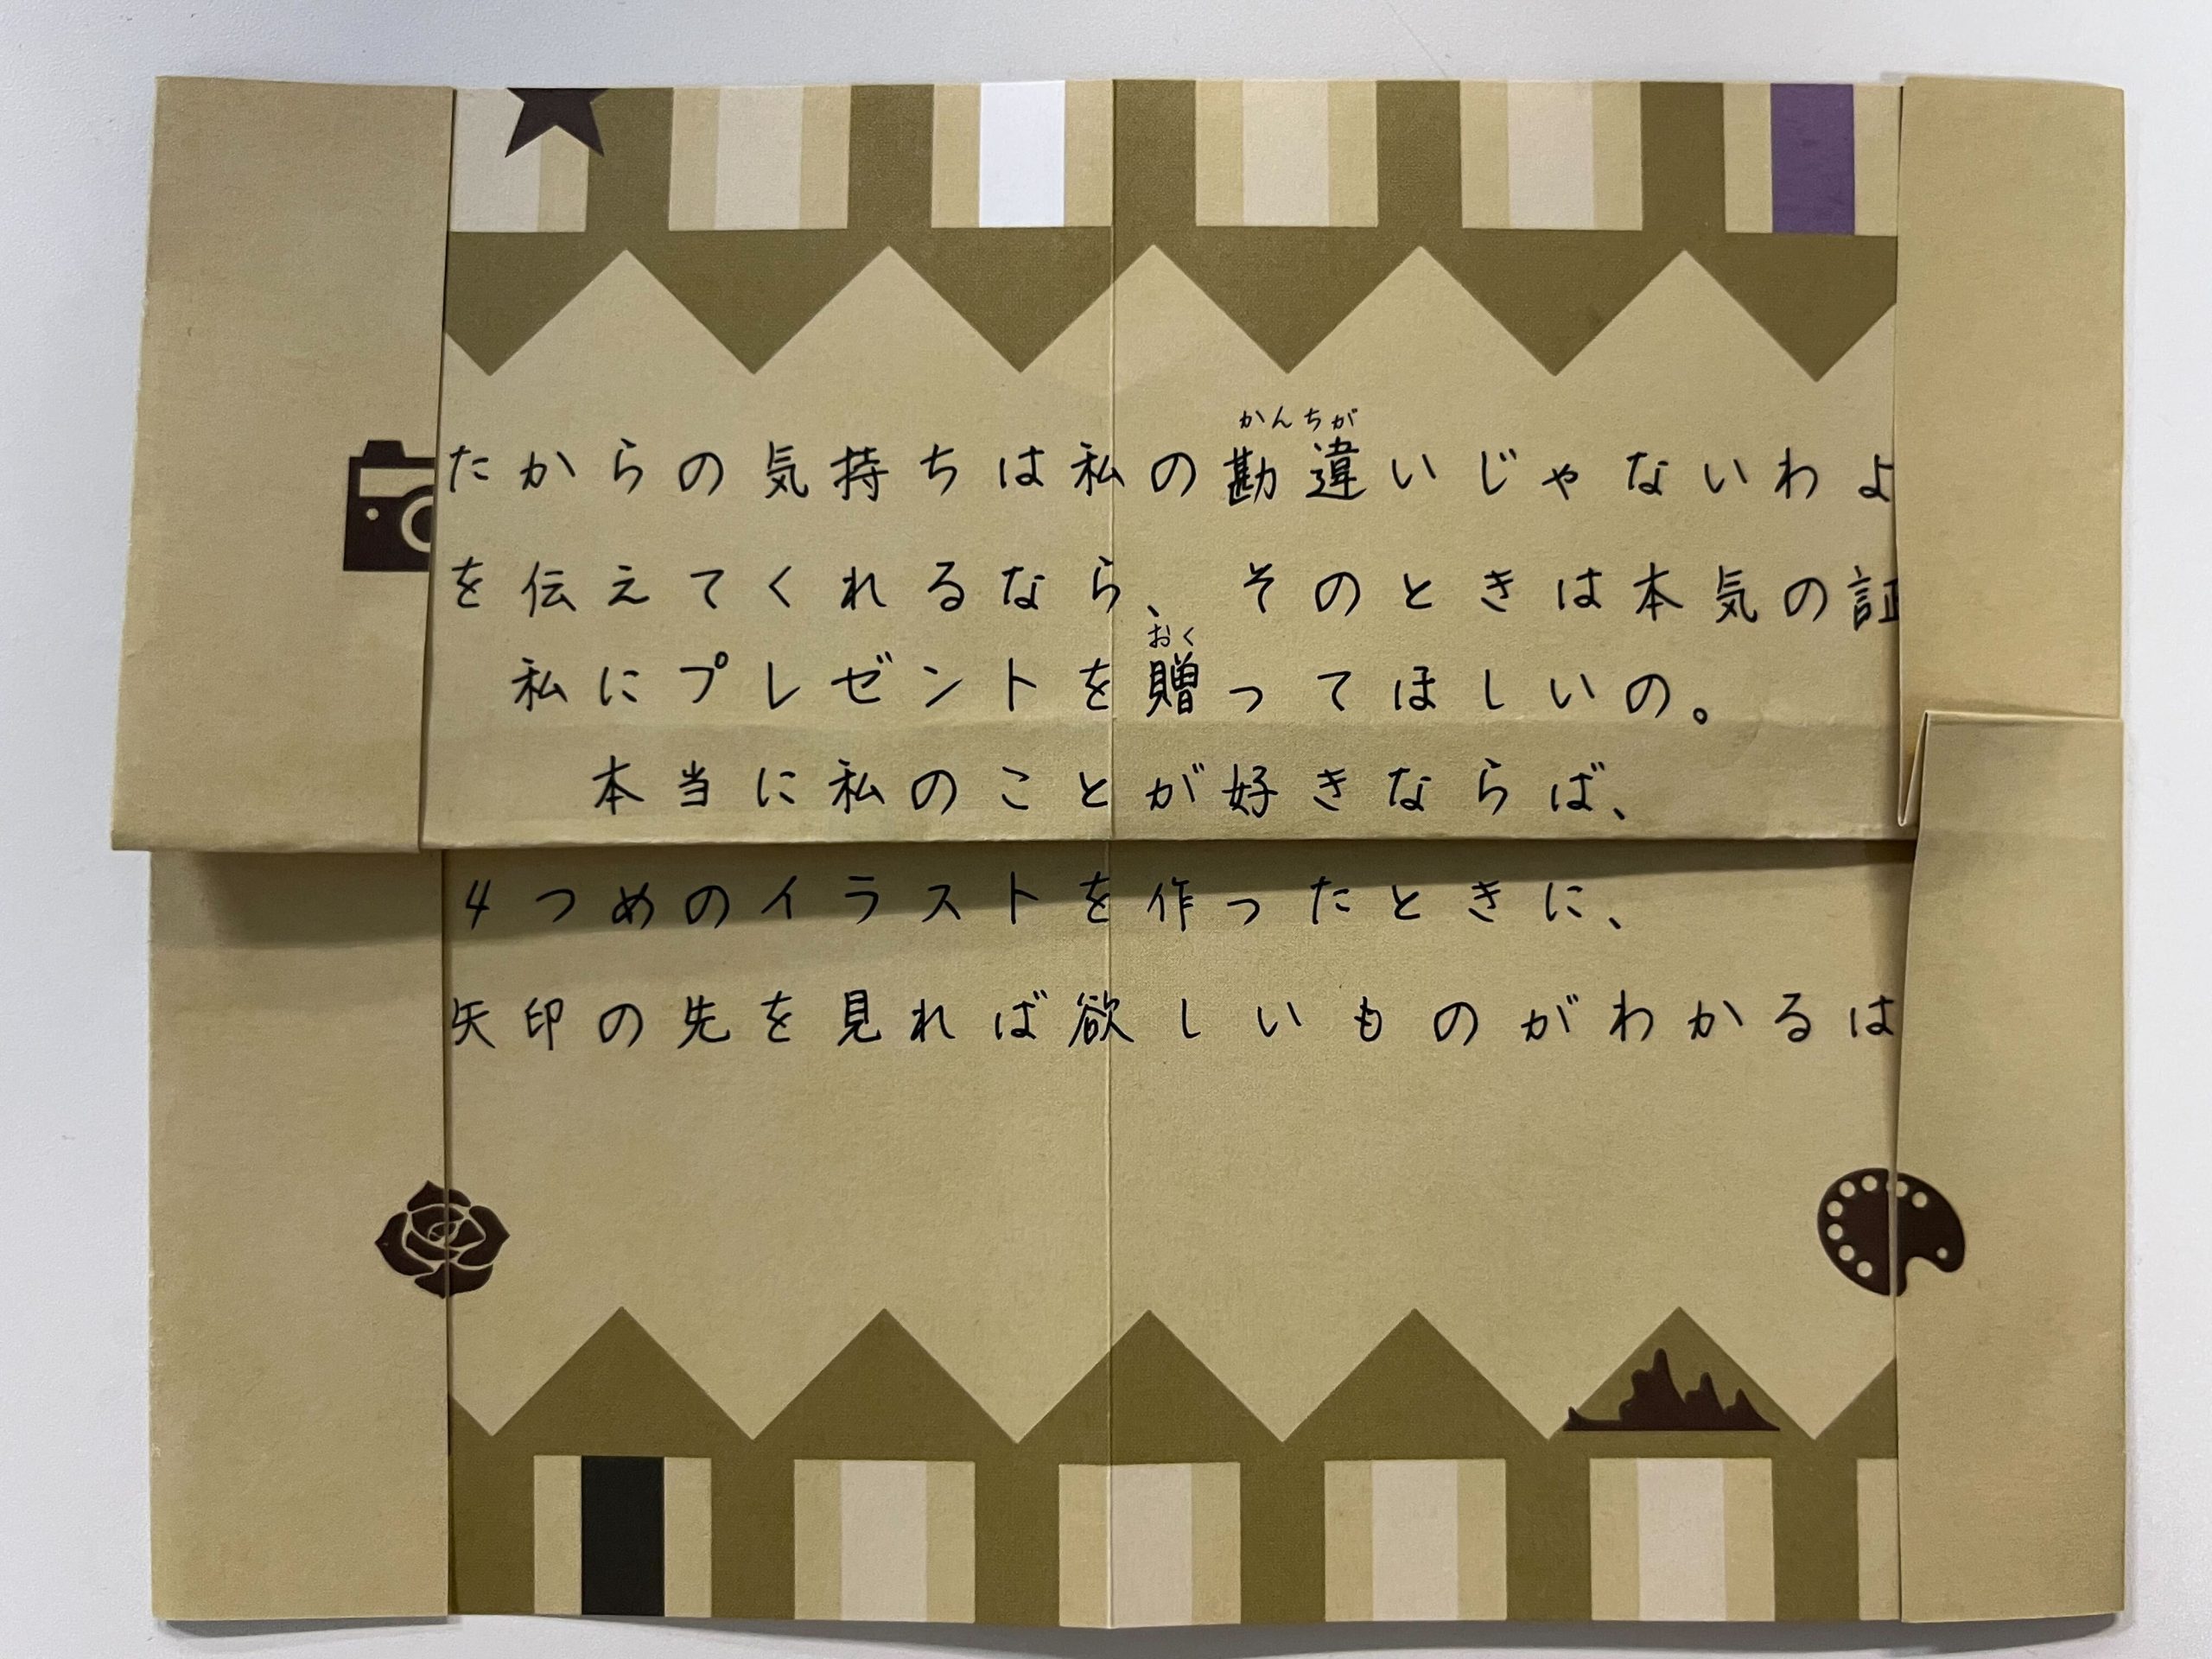 かんちが
たからの気持ちは私の勘違いじゃないわよ
を伝えてくれるなら、そのときは本気の証
おく
私にプレゼントを贈ってほしいの。
本当に私のことが好きならば、
4つめのイラストを作ったときに、
矢印の先を見れば欲しいものがわかるは